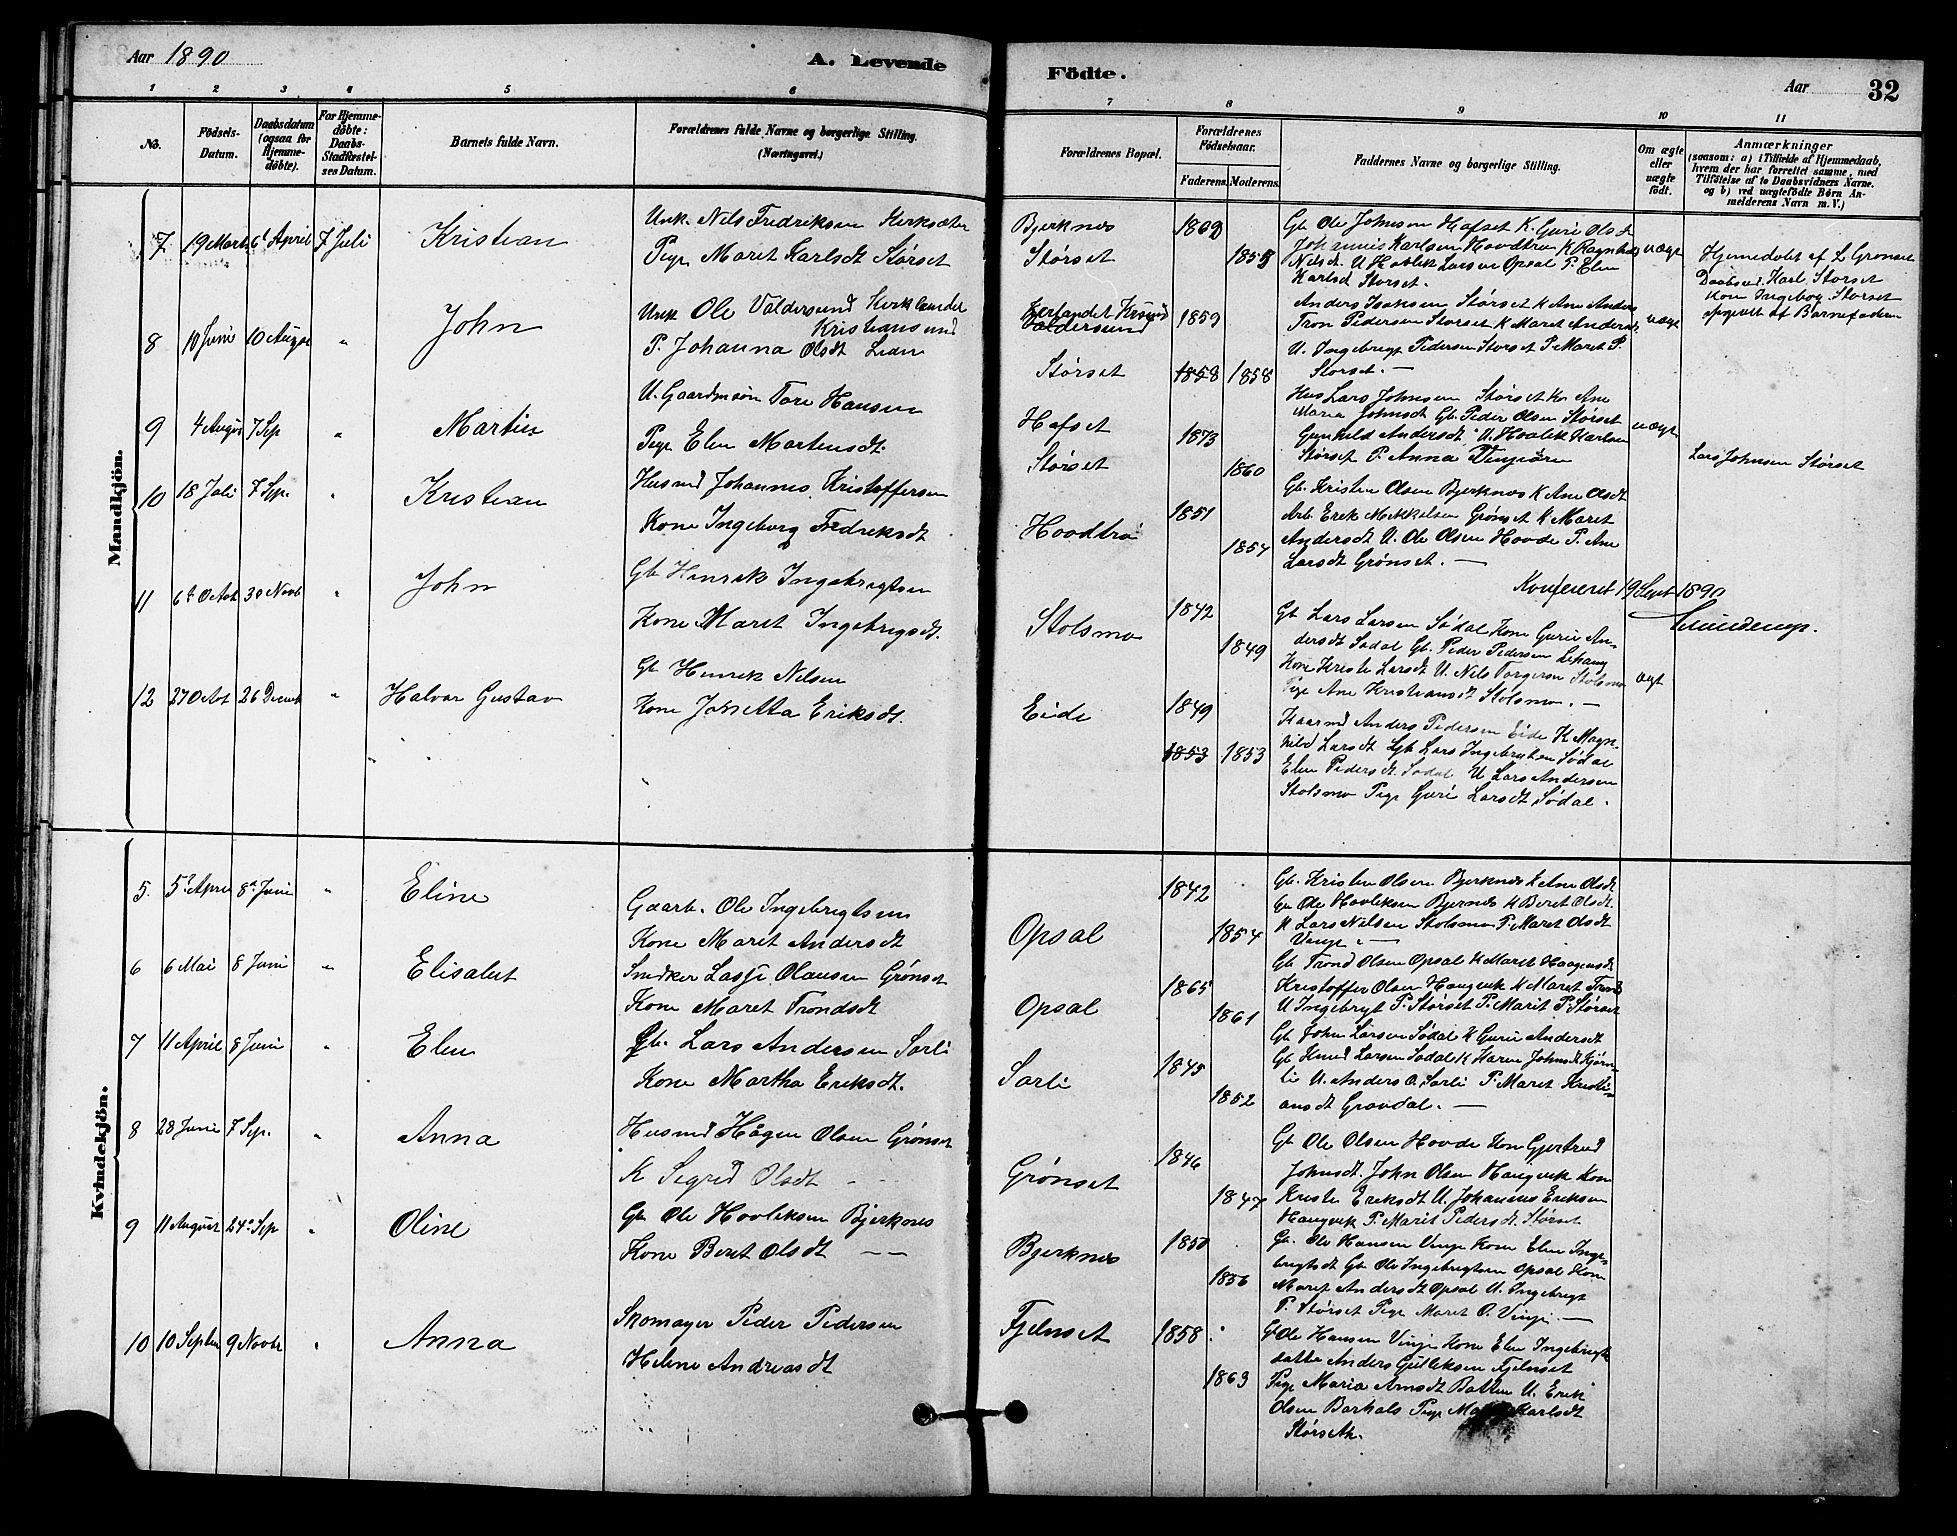 Aar 1890
A. Levende
Födte.
Aar
32
1 2 3 4 5 6 7 8 9 10 11
No.
Födsels-Datum.
Daabsdatum (ogsaa for Hjemme-döbte).
For Hjemme-döbte: Daabs-Stadfæstel-ses Datum.
Barnets fulde Navn.
Forældrenes fulde Navne og borgerlige Stilling. (Næringsvei.)
Forældrenes Bopæl.
Forældrenes Födselsaar.
Faderens. Moderens.
Faddernes Navne og borgerlige Stilling.
Om ægte eller uægte födt.
Anmærkninger
(saasom: a) i Tilfælde af Hjemmedaab, hvem der har forrettet samme, med Tilföielse af to Daabsvidners Navne. og b) ved uægtefödte Börn, An-melderens Navn m. V.)
Mandkjön.
7 19 Marts 6t April 7 Juli Kristian
Unk. Nils Fredriksen Kirksæter
Pige Maret Karlsdt Størset
Bjerknes
Størset
1862
1855
Gb Ole Johnsen Hafset K. Guri Olsd
Johannes Karlsen Hovdtrøa K Ragnhild
Nilsdt U. Hovlik Larsen Opsal P. Elen
Karlsd Størset.
uægt
Hjemedøbt af L Grønset
Daabsvid. Karl Størset
Kone Ingebog Størset
opgivelt af Barnefaderen
8 10 Juni 10 August " John
Unk Ole Valdersund Kirklandet
Kristiansund
P. Johanna Olsdt
Valdersund
Størset
1859
1858 1858
Anders Isaksen Størset K Ane Anders
Tron Pedersen Størset K Maret Andersdt
U. Ingebrigt Pedersen Størset P Maret P.
Størset. —
uægt
9 4 August 7 Sep " Martin
U. Gaardmsøn Tore Hansen
Pige Elen Martensdt.
Hafset
Størset
1873
1860
Hus Lars Johnsen Størset Kn Ane
Maria Johnsdt Gb. Peder Olsen Størset
Gunhild Andersdt U. Hovlik Karlsen
Størset P. Anna Vinjeøren
uægt
Lars Johnsen Størset
10 18 Juli 7 Sep. " Kristian
Husmd Johannes Kristoffersen
Kone Ingeborg Fredriksdt
Hovdtrø
1851
1854
Gb. Kristen Olsen Bjerknes K Ane Olsdt
Arb. Erik Mikkelsen Grønset K Maret
Andersdt U. Ole Olsen Hovde P. Ane
Larsdt Grønset. —
Konfereret 19 Sept 1890
11 6t Octot 30 Novb " John
Gb Henrik Ingebrigtsen
Kone Maret Ingebrigsdt.
Stolsmo
1842
1849
Gb Lars Larsen Sødal Kone Guri An-
dersdt Sødal Gb. Peder Pedersen
Kone Kristi Larsdt U. Nils Torgersen Stolsmo
Pige Ane Kristiansdt Stolsmo. —
ægt
12 27 Octot 26 Decemb " Halvar Gustav
Gb Henrik Nilsen
Kone Jonetta Eriksdt.
Eide
1849
1853 1853
Kaarmd Anders Pedersen Eide K Magn-
hild Larsdt Lgb Lars Ingebrigtsen Sødal
Elen Pedersdt. Sødal U Lars Andersen
Stolsmo Pige Guri Larsdt Sødal.
Kvindekjön.
5. 5t April 8d Juni " Eline
Gaarb. Ole Ingebrigtsen
Kone Maret Andersdt
Opsal
1842
1854
Gb. Kristen Olsen Bjerknes K Ane Olsdt
Gb Ole Hovliksen Bjerknes K Beret Olsdt.
U Lars Nilsen Stolsmo P. Maret Olsdt
Vinje. —
6 6 Mai 8 Juni " Elisabet
Snedker Lasse Olausen Grønset
Kone Maret Trondsdt
Opsal
1865
1861
Gb Trond Olsen Opsal K Maret Haagensdt
Kristoffer Olsen Haugvik K Maret Tronds
U Ingebrigt P. Størset P. Marit P. Størset
7 11 April 8 Juni " Elen
Gb. Lars Andersen Sarli
Kone Martha Eriksdt.
Sarli
1845
1852
Gb John Larsen Sødal K Guri Andersdt
Gb Knud Larsen Sødal K Karen Johnsdt Kjørn-
lie U. Anders O. Sarli P. Maret Kristi-
ansdt Gravdal. —
8 28 Juni 7 Sep. " Anna
Husmd Hågen Olsen Grønset
K Sigrid Olsdt — —
Grønset
1846
1847
Gb Ole Olsen Hovde Kone Gjertrud
Johnsdt. John Olsen Haugvik Kone
Kristi Eriksdt U. Johannes Eriksen
Haugvik P. Marit Pedersdt. Størset
9 11 August 24d Sep " Oline
Gb Ole Hovliksen Bjerknes
Kone Beret Olsdt — —
Bjerknes
1850
1856
Gb. Ole Hansen Vinje Kone Elen Inge-
brigtsdt Gb Ole Ingebrigtsen Opsal Kone
Maret Andersdt Opsal U. Ingebrigt
P. Størset Pige Maret O. Vinje. —
10 10 Septem 9 Novbr " Anna
Skomager Peder Pedersen
Helene Andreasdt
Fjelnset
1858
1863
Gb Ole Hansen Vinje Kone Elen Ingebrigts
datter Anders Gulliksen Fjelnset
Pige Maria Arnsdt Batten U. Erik
Olsen Barhals Pige Karlsdt
Størseth.